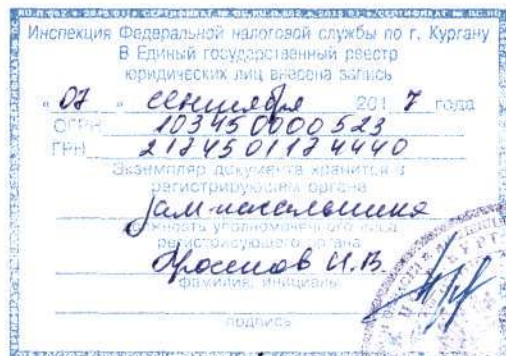 Инспекция Федеральной налоговой службы по г. Кургану
В Единый государственный реестр
юридических лиц внесена запись
« 07 » сентября 2017 года
ОГРН 103450000523
ГРН 2174501174440
Экземпляр документа хранится в
регистрирующем органе
зам. начальника
должность уполномоченного лица
регистрирующего органа
И.В.
фамилия, инициалы
подпись